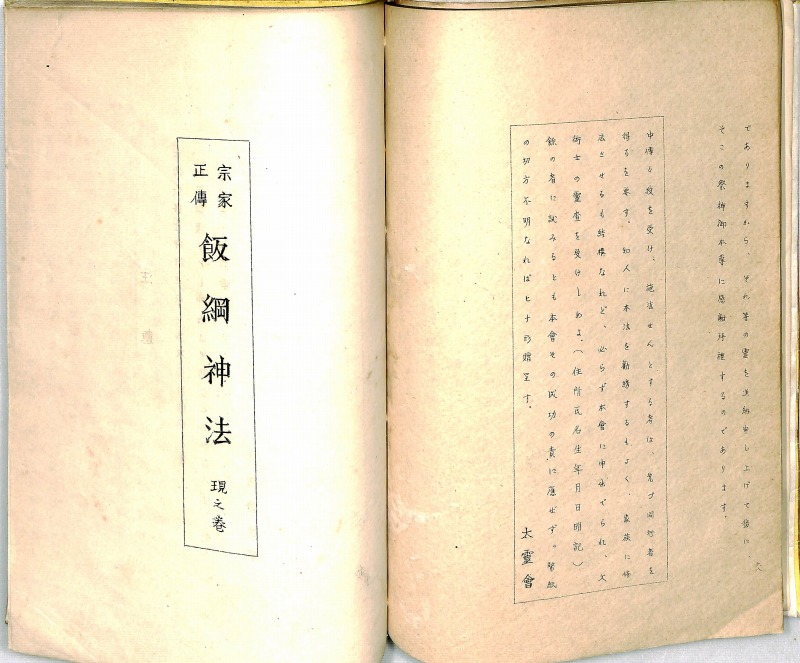 でありますから、それ等の霊を送納申し上げて後に
そこの祭神御本尊に感謝拝礼するのであります。
中傳々授を受け、施法せんとする者は、先づ同行者を
得るを要す。知人に本法を勧誘するもよく、家族に修
法させるも結構なれど、必らず本會に申出でられ、大
術士の靈査を受けしめよ。(住所氏名生年月日明記)
餘の者に試みるとも本會その成功の責に應ぜず。
の切方不明なればヒナ形贈呈す。
太靈會
六八
宗家
正傳
飯綱神法
現之卷